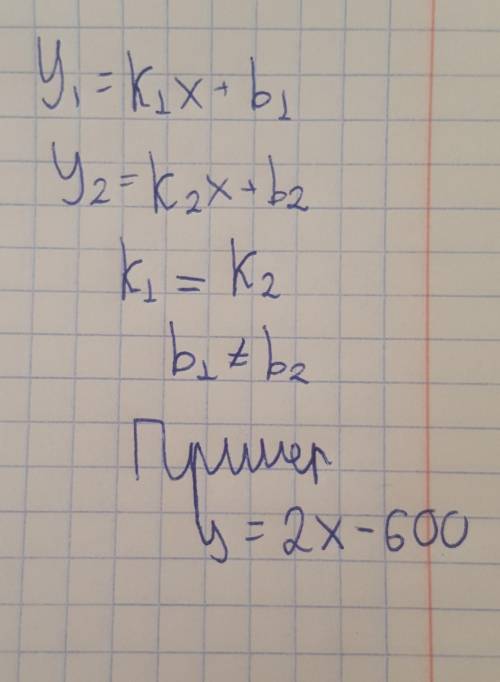 y₁ = k₁x + b₁
y₂ = k₂x + b₂
k₁ = k₂
b₁ ≠ b₂
Пример
y = 2x - 600